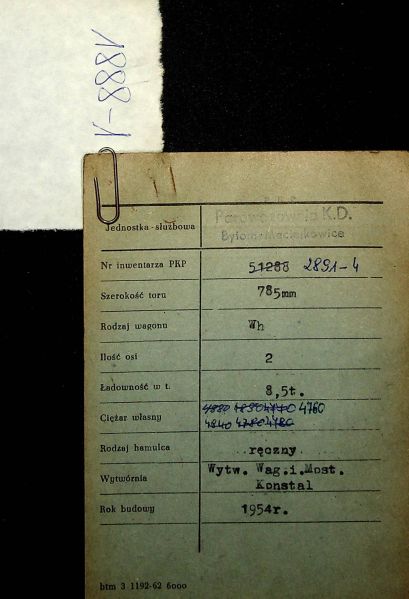 V-888V
Parowozownia K.D.
Jednostka służbowa Bytom-Maciejkowice
Nr inwentarza PKP 51288 2891-4
Szerokość toru 785mm
Rodzaj wagonu Wh
Ilość osi 2
Ładowność w t. 8,5t.
4880 4890 4770 4760
Ciężar własny 4840 4780 4780
Rodzaj hamulca ręczny
Wytw. Wag.i.Most.
Wytwórnia Konstal
Rok budowy 1954r.
btm 3 1192-62 6000